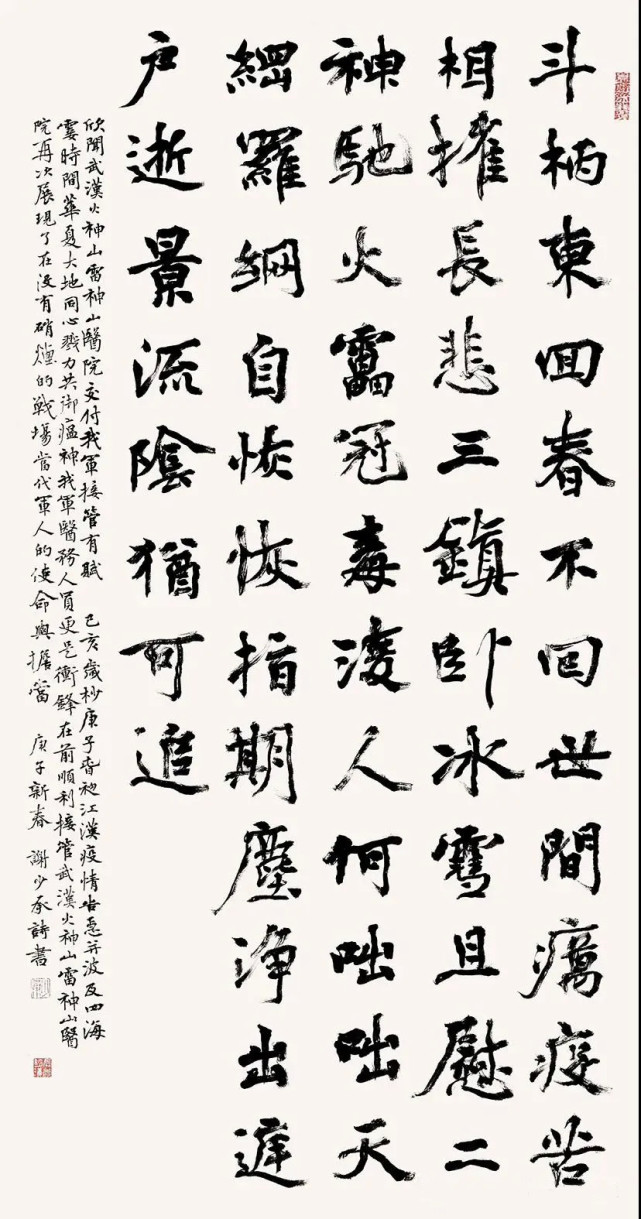 斗柄東囬春不回世間癘疫苦
相摧長悲三鎮卧冰雪且慰二
神馳火靁冠毒淩人何咄咄天
網羅綱自恢恢指期塵淨出遲
户逝景流陰猶可追
欣聞武漢火神山雷神山醫院交付我軍接管有賦 己亥歲杪庚子春初江漢疫情告急并波及四海
霎時間華夏大地同心戮力共御瘟神我軍醫務人員更是衝鋒在前順利接管武漢火神山雷神山醫
院再次展現了在沒有硝煙的戰場當代軍人的使命與擔當 庚子新春 謝少承詩書